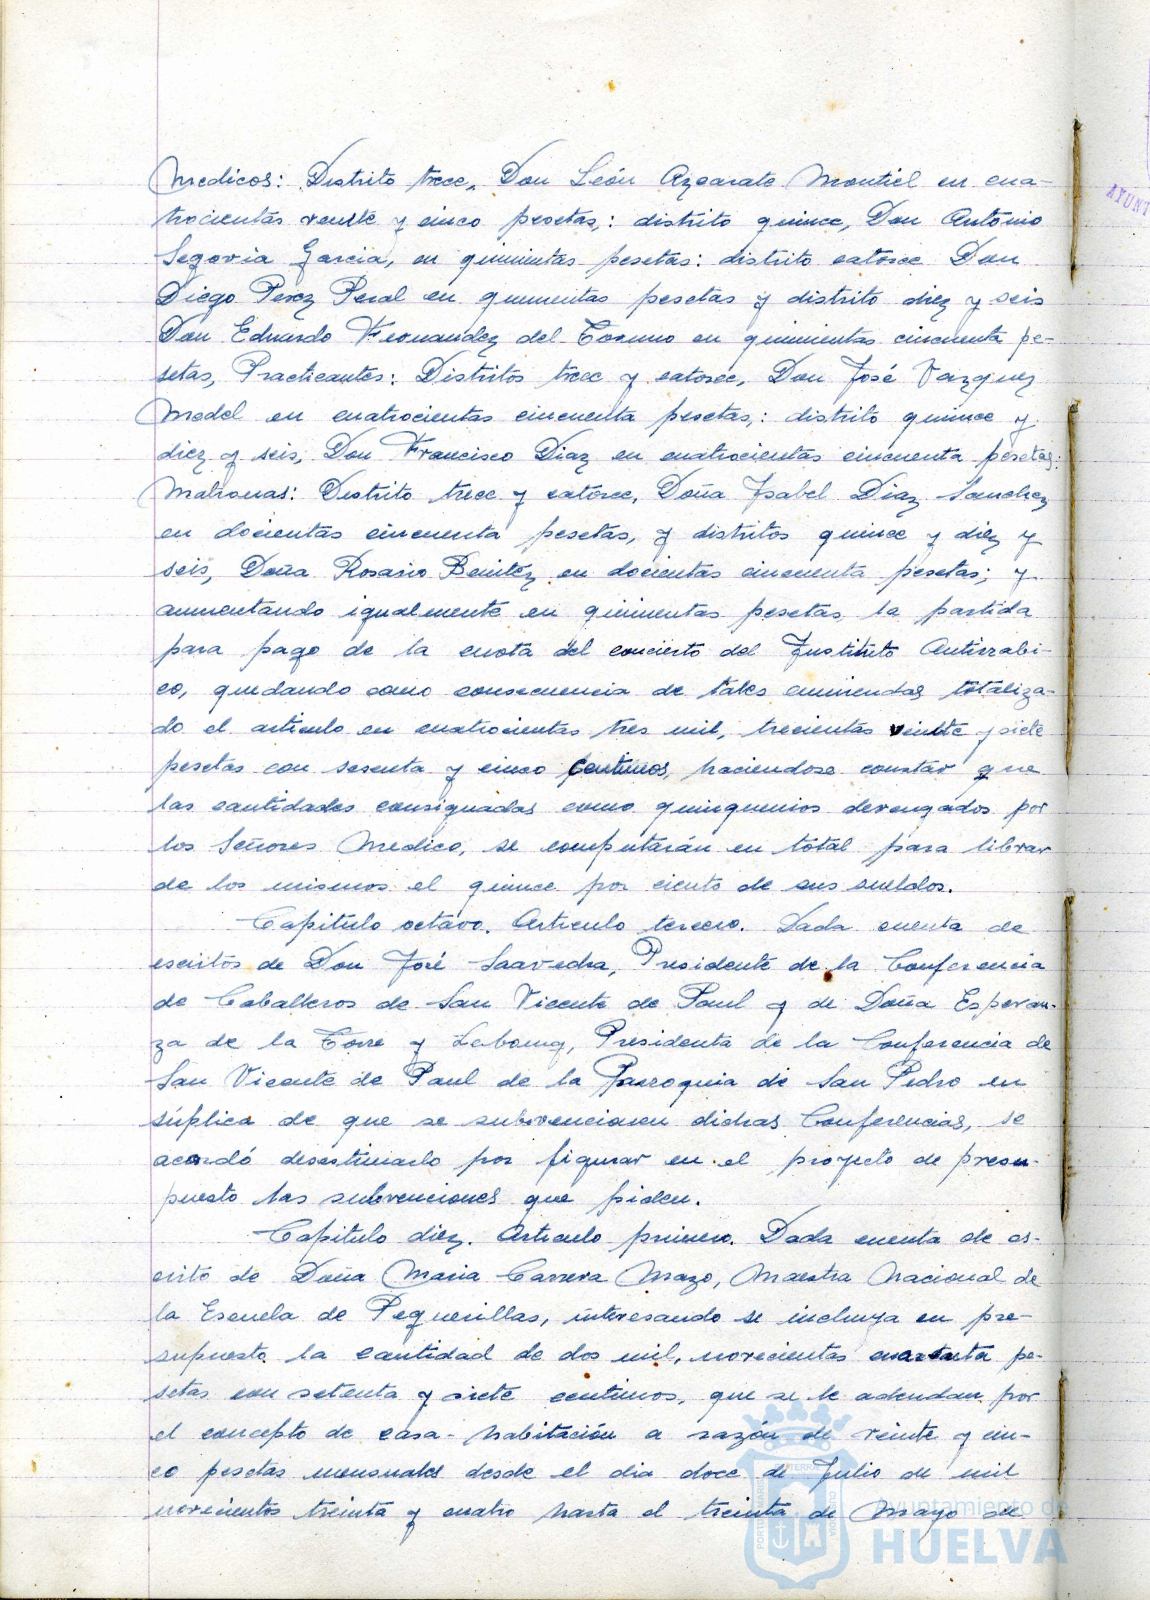 Medicos: Distrito trece, Don León Azcarate Montiel en cua-
trocientas veinte y cinco pesetas,: distrito quince, Don Antonio
Segovia Garcia, en quinientas pesetas: distrito catorce Don
Diego Perez Peral en quinientas pesetas y distrito diez y seis
Don Eduardo Fernandez del Torno en quinientas cincuenta pe-
setas, Practicantes: Distritos trece y catorce, Don José Vazquez
Medel en cuatrocientas cincuenta pesetas,: distrito quince y
diez y seis, Don Francisco Diaz en cuatrocientas cincuenta pesetas:
Matronas: Distrito trece y catorce, Doña Isabel Diaz Sanchez
en docientas cincuenta pesetas, y distritos quince y diez y
seis, Doña Rosario Benitez en docientas cincuenta pesetas; y
aumentando igualmente en quinientas pesetas la partida
para pago de la cuota del concierto del Instituto Antirrabi-
co, quedando como consecuencia de tales enmiendas totaliza-
do el articulo en cuatrocientas tres mil, trecientas veinte y siete
pesetas con sesenta y cinco centimos, haciendose constar que
las cantidades consignadas como quinquenios devengados por
los Señores Medico, se computarán en total para librar
de los mismos el quince por ciento de sus sueldos.
Capitulo octavo. Articulo tercero. Dada cuenta de
escritos de Don José Saavedra, Presidente de la Conferencia
de Caballeros de San Vicente de Paul y de Doña Esperan-
za de la Torre y Lebourg, Presidenta de la Conferencia de
San Vicente de Paul de la Parroquia de San Pedro en
súplica de que se subvencionen dichas Conferencias, se
acordó desestimarlo por figurar en el proyecto de presu-
puesto las subvenciones que piden.
Capitulo diez. Articulo primero. Dada cuenta de es-
crito de Doña Maria Carrera Mazo, Maestra Nacional de
la Escuela de Pequenillas, interesando se incluya en pre-
supuesto la cantidad de dos mil, novecientas cuarenta pe-
setas con setenta y siete centimos, que se le adeudan por
el concepto de casa-habitación a razón de veinte y cin-
co pesetas mensuales desde el dia doce de Julio de mil
novecientos treinta y cuatro hasta el treinta de Mayo de
AYUNT
Ayuntamiento de
HUELVA